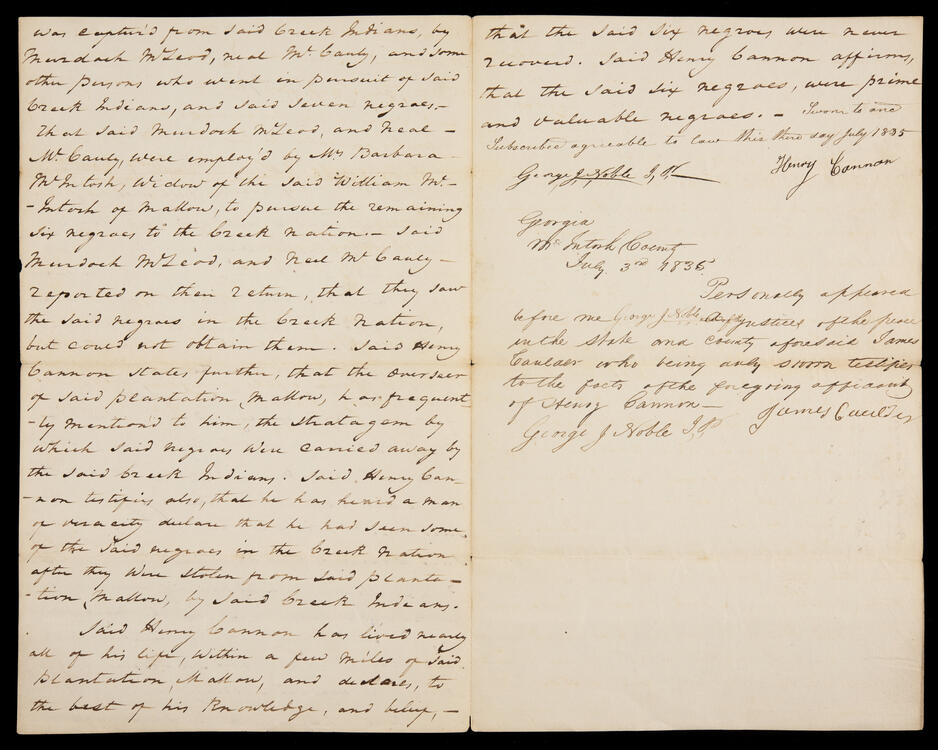 was captur'd from said Creek Indians, by
Murdoch McLeod, neal McCauly, and some
other persons who went in pursuit of said
Creek Indians, and said seven negroes,-
that said Murdoch McLeod, and Neal -
McCauly, were employ'd by Mrs Barbara
McIntosh, Widow of the said William Mc-
-Intosh of Mallow, to pursue the remaining
six negroes to the Creek Nation. - Said
Murdoch McLeod, and Neil McCauly -
reported on their return, that they saw
the said negroes in the Creek Nation,
but could not obtain them. Said Henry
Cannon states further, that the overseer
of said plantation, Mallow, has frequent
-ly mention'd to him, the stratagem by
which said negroes were carried away by
the said Creek Indians. Said Henry Can-
-non testifies also, that he has heard a man
of veracity declare that he had seen some
of the said negroes in the Creek Nation
after they were stolen from said planta-
-tion, Mallow, by said Creek Indians.
Said Henry Cannon has lived nearly
all of his life, within a few miles of said
plantation, Mallow, and declares, to
the best of his knowledge, and belief, -
that the said six negroes were never
recoverd. Said Henry Cannon affirms,
that the said six negroes, were prime
and valuable negroes. - Sworn to and
Subscribed agreeable to law this third day July 1835
George J Noble J,P. Henry Cannon
Georgia
McIntosh County
July 3rd 1835
Personally appeared
before me George J Noble a Justice of the peace
in the State and County aforesaid James
Caulder who being duly sworn testifies
to the facts of the foregoing affidavit
of Henry Cannon - James Caulder
George J Noble J,P